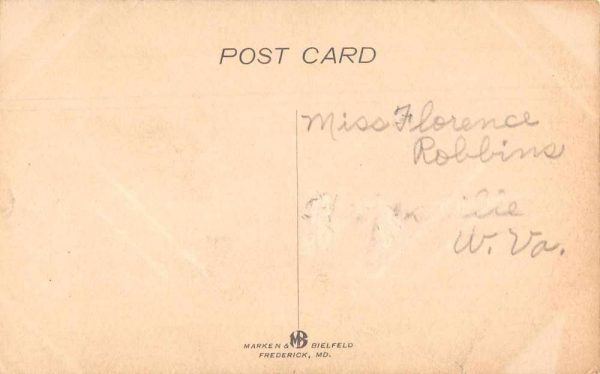 POST CARD
Miss Florence
Robbins
W. Va.
MARKEN & MB BIELFELD
FREDERICK, MD.